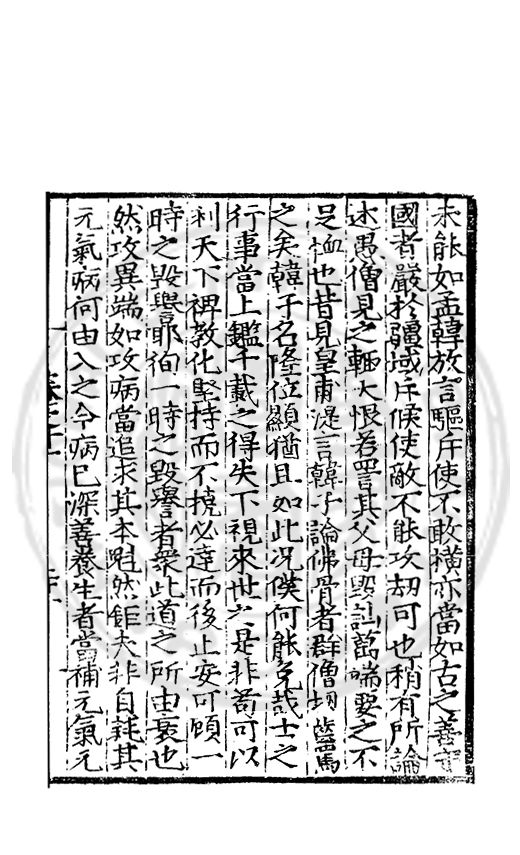 未能如孟韓放言驅斥使不敢橫亦當如古之善守
國者嚴於疆域斥候使敵不能攻刧可也稍有所論
述愚僧見之輙大恨若詈其父母毁訕萬端要之不
足恤也昔見皇甫湜言韓子論佛骨者群僧切齒罵
之矣韓子名隆位顯猶且如此况僕何能免哉士之
行事當上鑑千載之得失下視來世之是非苟可以
利天下裨教化堅持而不撓必達而後止安可顧一
時之毁譽耶徇一時之毁譽者衆此道之所由衰也
然攻異端如攻病當追求其本魁然鉅夫非自耗其
元氣病何由入之今病已深善養生者當補元氣元